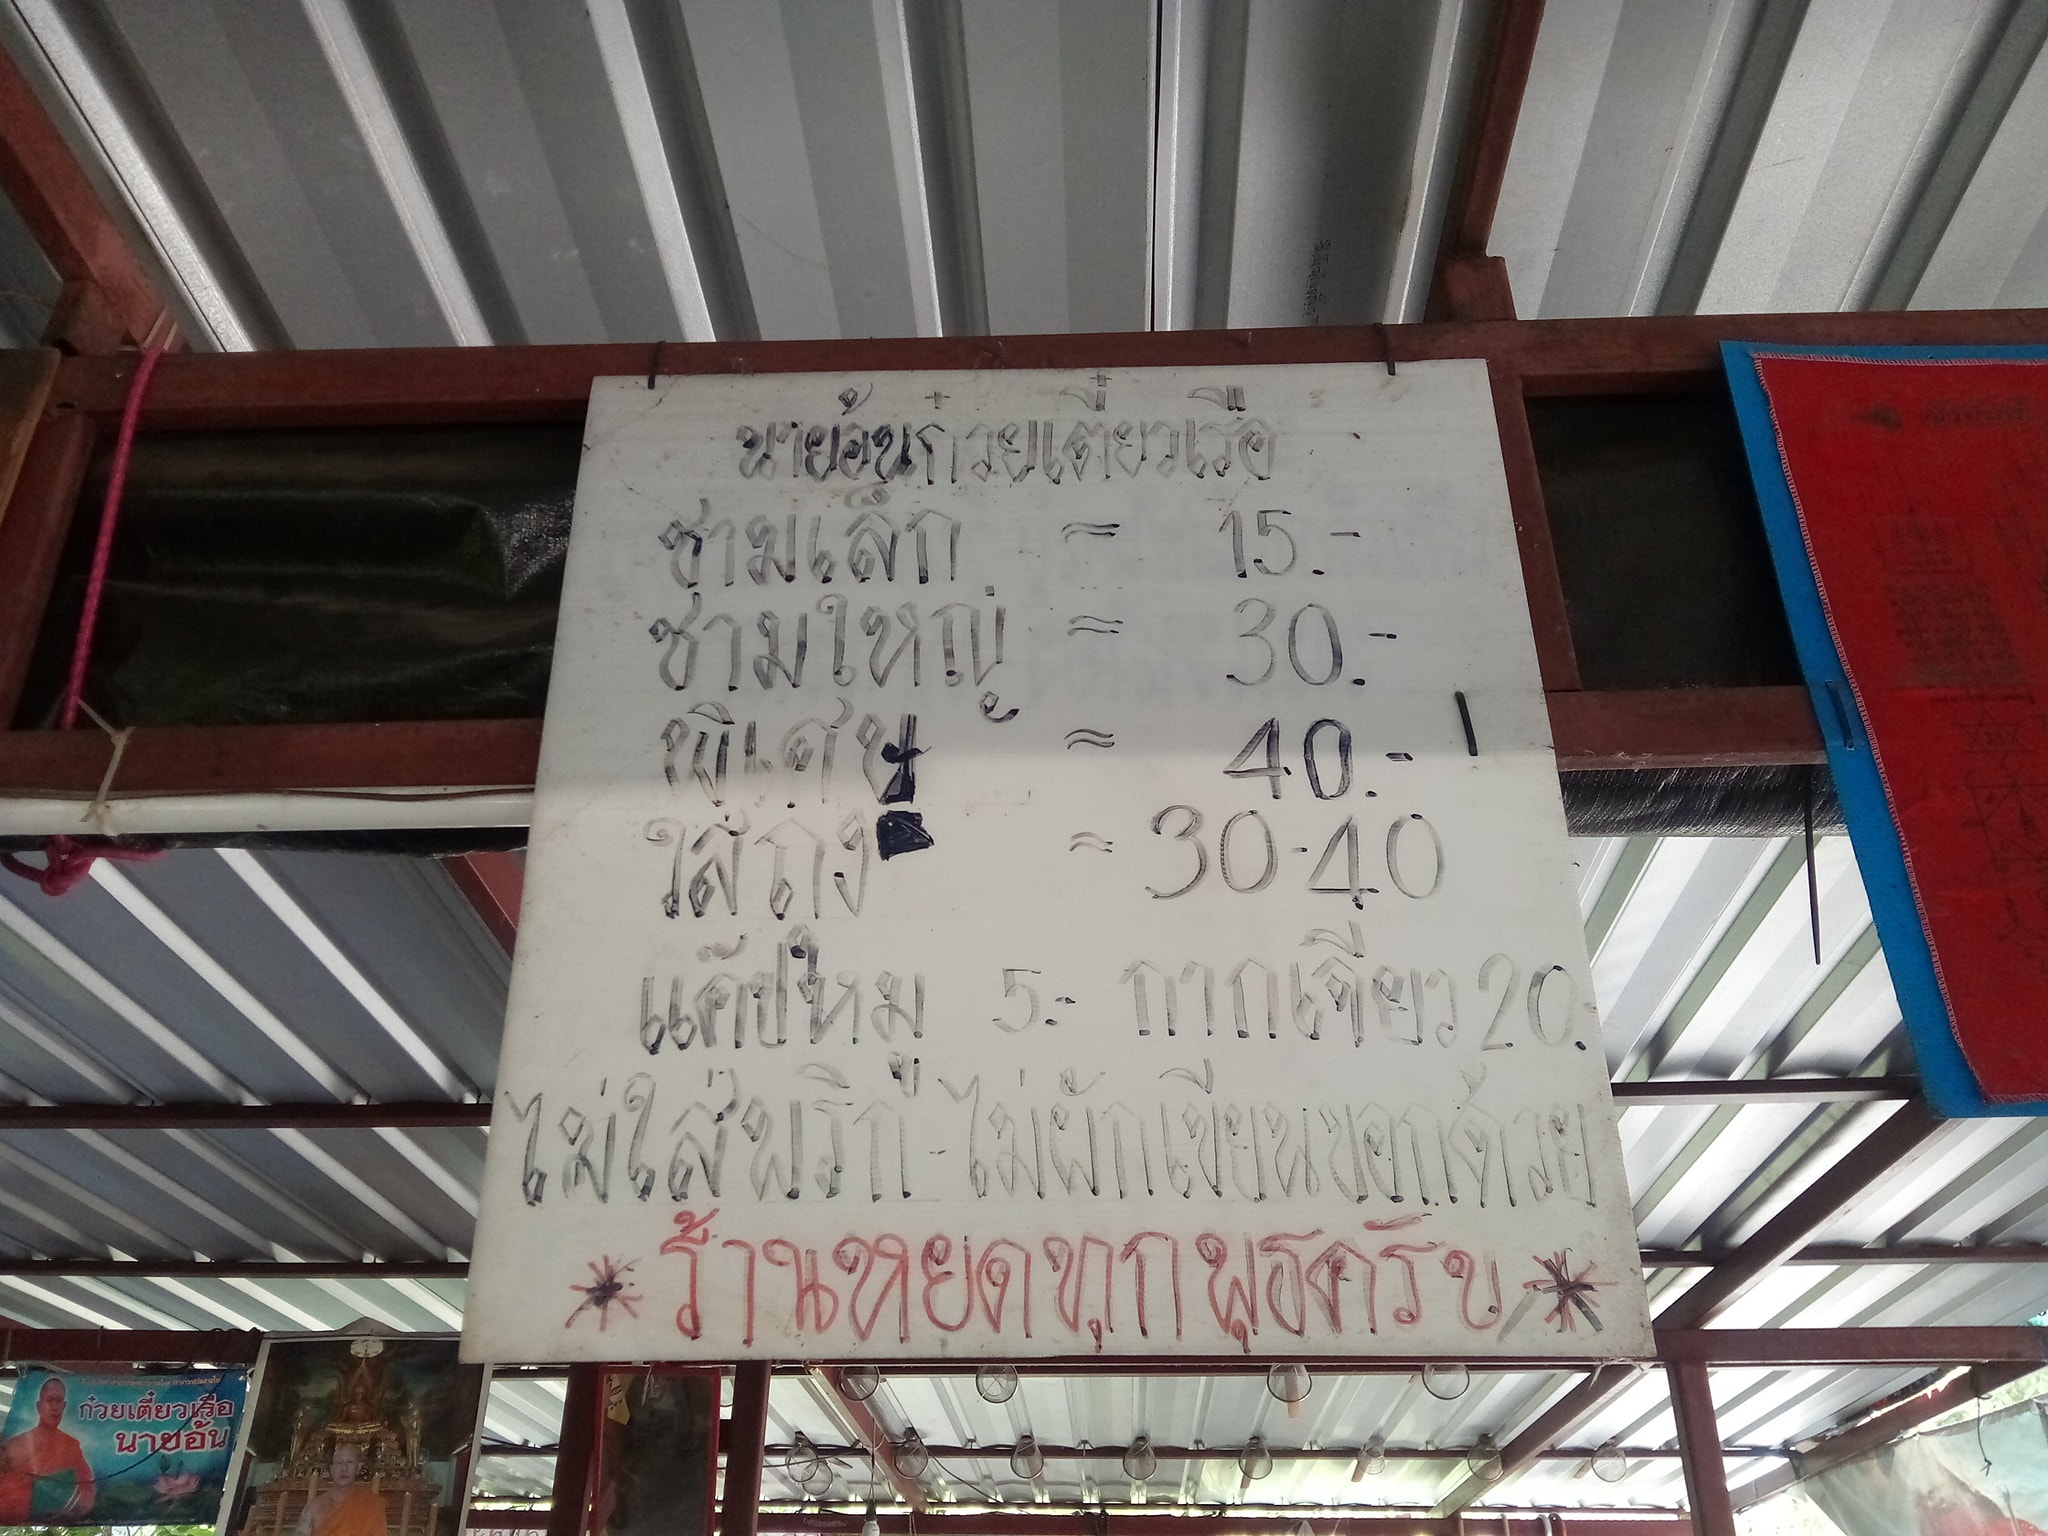 นายอ้นก๋วยเตี๋ยวเรือ
ชามเล็ก = 15.-
ชามใหญ่ = 30.-
พิเศษ = 40.-
ใส่ถุง = 30-40
แค๊ปหมู 5.- กากเจียว 20.-
ไม่ใส่พริก-ไม่ผักเขียนบอกด้วย
* ร้านหยุดทุกพุธครับ *
ก๋วยเตี๋ยวเรือ
นายอ้น